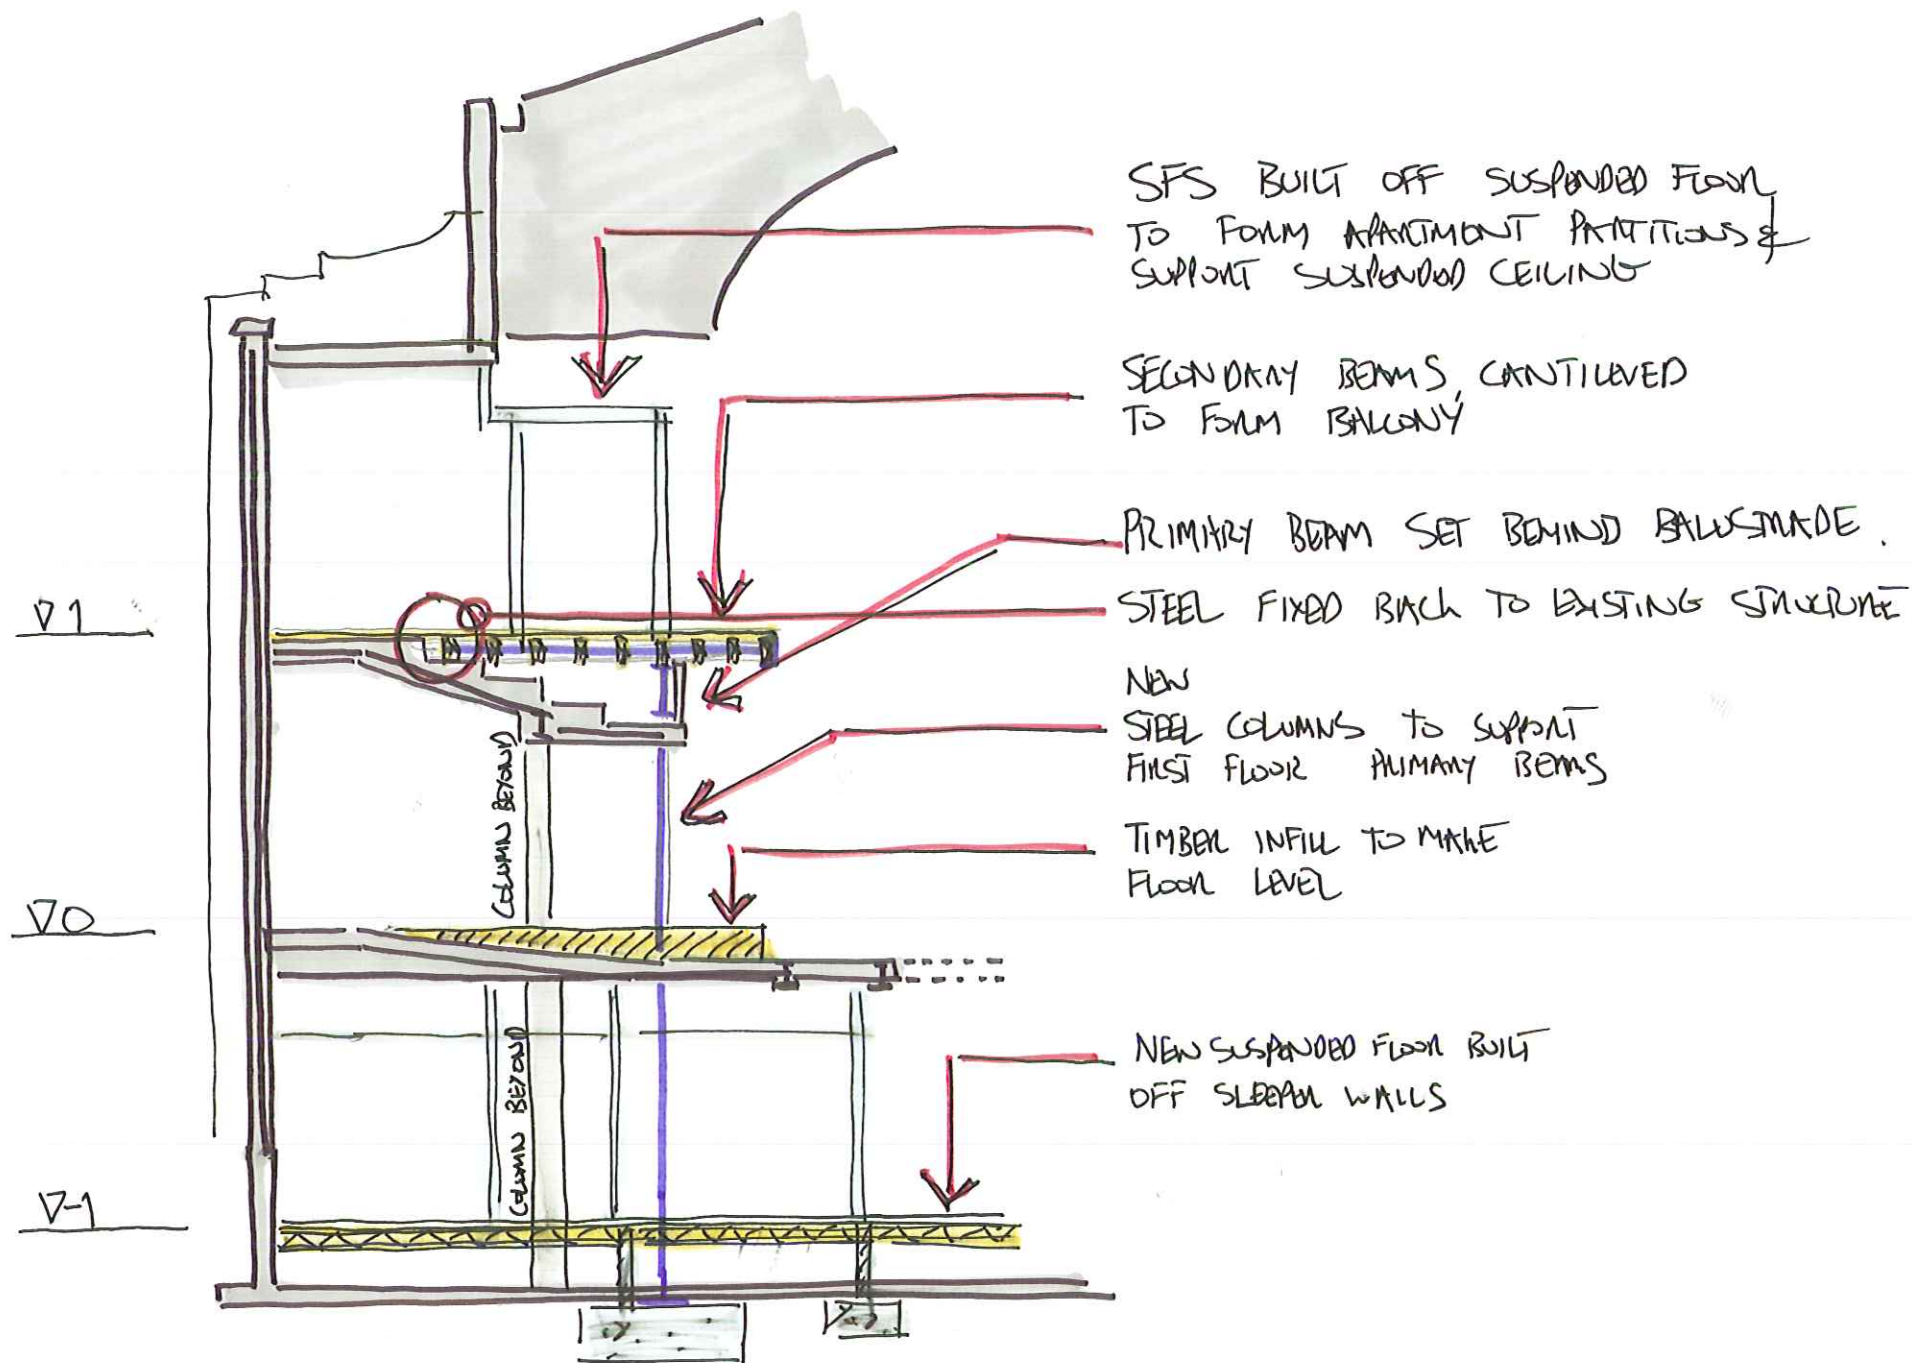 SFS BUILT OFF SUSPENDED FLOOR
TO FORM APARTMENT PARTITIONS &
SUPPORT SUSPENDED CEILING
SECONDARY BEAMS, CANTILEVED
TO FORM BALCONY
PRIMARY BEAM SET BEHIND BALUSTRADE.
STEEL FIXED BACK TO EXISTING STRUCTURE
NEW
STEEL COLUMNS TO SUPPORT
FIRST FLOOR PRIMARY BEAMS
TIMBER INFILL TO MAKE
FLOOR LEVEL
NEW SUSPENDED FLOOR BUILT
OFF SLEEPER WALLS
∇1
∇0
∇-1
COLUMN BEYOND
COLUMN BEYOND